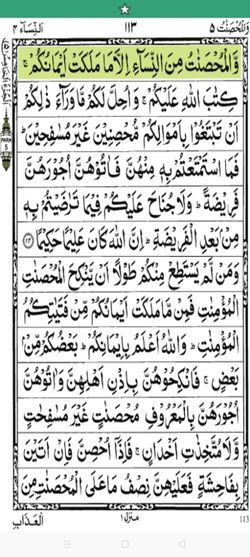 وَالْمُحْصَنٰتُ ٥
١١٣
اَلنِّسَآء ٤
وَّالْمُحْصَنٰتُ مِنَ النِّسَآءِ اِلَّا مَا مَلَكَتْ اَيْمَانُكُمْ ۚ
كِتٰبَ اللّٰهِ عَلَيْكُمْ ۚ وَاُحِلَّ لَكُمْ مَّا وَرَآءَ ذٰلِكُمْ
اَنْ تَبْتَغُوْا بِاَمْوَالِكُمْ مُّحْصِنِيْنَ غَيْرَ مُسٰفِحِيْنَ ؕ
فَمَا اسْتَمْتَعْتُمْ بِهٖ مِنْهُنَّ فَاٰتُوْهُنَّ اُجُوْرَهُنَّ
فَرِيْضَةً ؕ وَلَا جُنَاحَ عَلَيْكُمْ فِيْمَا تَرٰضَيْتُمْ بِهٖ
مِنْۢ بَعْدِ الْفَرِيْضَةِ ؕ اِنَّ اللّٰهَ كَانَ عَلِيْمًا حَكِيْمًا ﴿٢٤﴾
وَمَنْ لَّمْ يَسْتَطِعْ مِنْكُمْ طَوْلًا اَنْ يَّنْكِحَ الْمُحْصَنٰتِ
الْمُؤْمِنٰتِ فَمِنْ مَّا مَلَكَتْ اَيْمَانُكُمْ مِّنْ فَتَيٰتِكُمُ
الْمُؤْمِنٰتِ ؕ وَاللّٰهُ اَعْلَمُ بِاِيْمَانِكُمْ ؕ بَعْضُكُمْ مِّنْۢ
بَعْضٍ ۚ فَانْكِحُوْهُنَّ بِاِذْنِ اَهْلِهِنَّ وَاٰتُوْهُنَّ
اُجُوْرَهُنَّ بِالْمَعْرُوْفِ مُحْصَنٰتٍ غَيْرَ مُسٰفِحٰتٍ
وَّلَا مُتَّخِذٰتِ اَخْدَانٍ ۚ فَاِذَآ اُحْصِنَّ فَاِنْ اَتَيْنَ
بِفَاحِشَةٍ فَعَلَيْهِنَّ نِصْفُ مَا عَلَى الْمُحْصَنٰتِ مِنَ
الْعَذَابِ
منزل ١
113
PARA
5